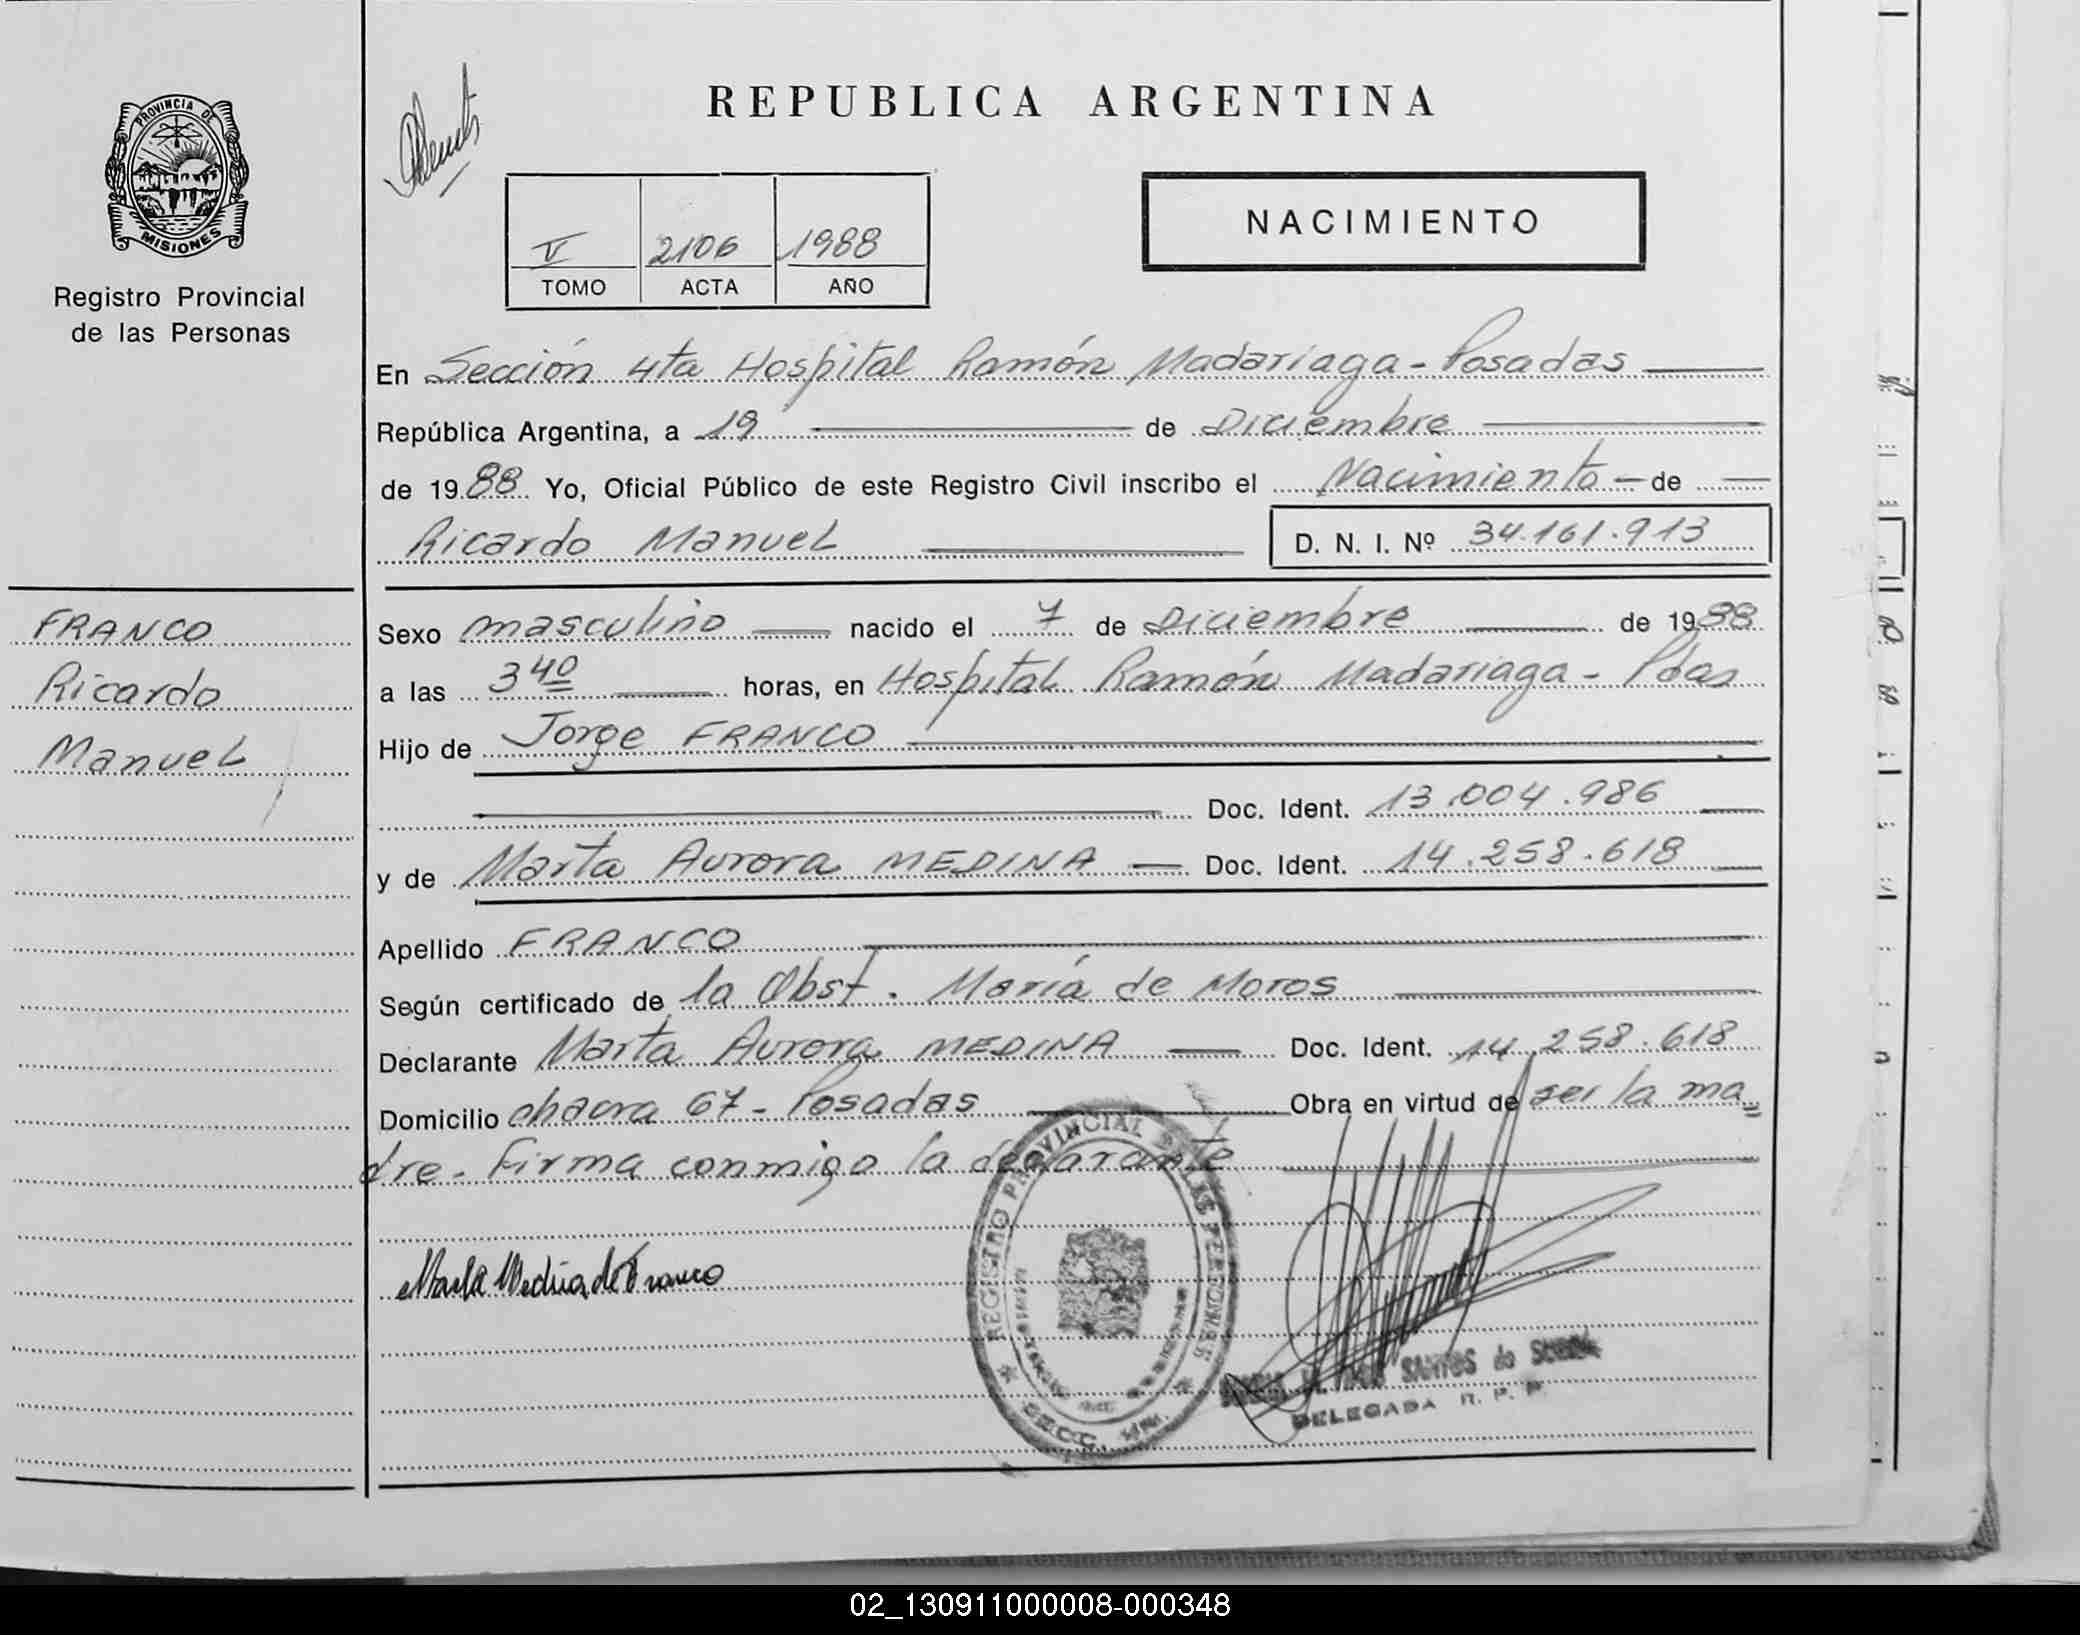 PROVINCIA DE
MISIONES
Registro Provincial
de las Personas
FRANCO
Ricardo
Manuel
REPUBLICA ARGENTINA
V 2106 1988
TOMO ACTA AÑO
NACIMIENTO
En Sección 4ta Hospital Ramón Madariaga - Posadas
República Argentina, a 19 de Diciembre
de 1988 Yo, Oficial Público de este Registro Civil inscribo el Nacimiento - de
Ricardo Manuel D. N. I. Nº 34.161.913
Sexo masculino nacido el 7 de Diciembre de 1988
a las 3 40 horas, en Hospital Ramón Madariaga - Pdas
Hijo de Jorge FRANCO
Doc. Ident. 13.004.986
y de Marta Aurora MEDINA Doc. Ident. 14.258.618
Apellido FRANCO
Según certificado de la Obst. María de Moros
Declarante Marta Aurora MEDINA Doc. Ident. 14.258.618
Domicilio chacra 67 - Posadas Obra en virtud de ser la ma=
dre - Firma conmigo la declarante
Marta Medina de Franco
REGISTRO PROVINCIAL DE LAS PERSONAS
SANTOS de
DELEGADA R. P. P.
02_130911000008-000348